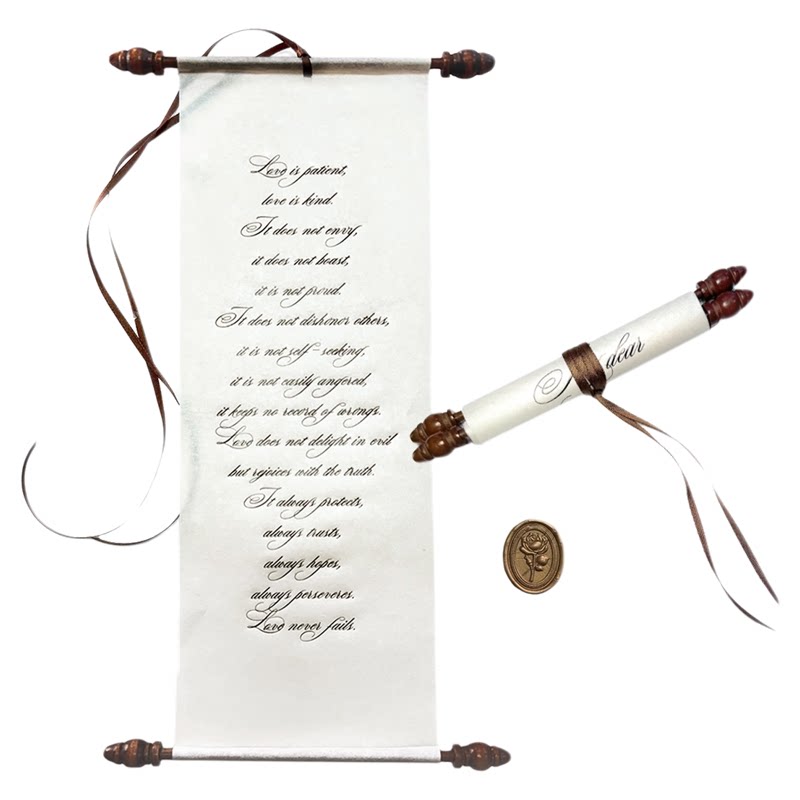 Love is patient,
love is kind.
It does not envy,
it does not boast,
it is not proud.
It does not dishonor others,
it is not self-seeking,
it is not easily angered,
it keeps no record of wrongs.
Love does not delight in evil
but rejoices with the truth.
It always protects,
always trusts,
always hopes,
always perseveres.
Love never fails.
dear